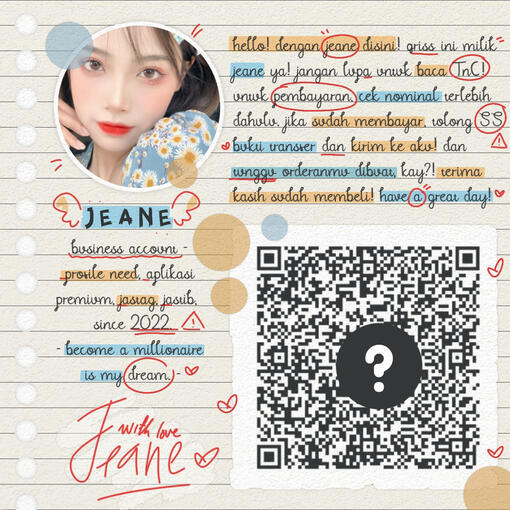 hello! dengan jeane disini! qriss ini milik
jeane ya! jangan lupa untuk baca TnC!
untuk pembayaran, cek nominal terlebih
dahulu. jika sudah membayar, tolong SS
bukti transfer dan kirim ke aku! dan
tunggu orderanmu dibuat, kay?! terima
kasih sudah membeli! have a great day!
JEANE
business account -
profile need, aplikasi
premium, jasiag, jasib,
since 2022
- become a millionaire
is my dream. -
with love
Jeane
?